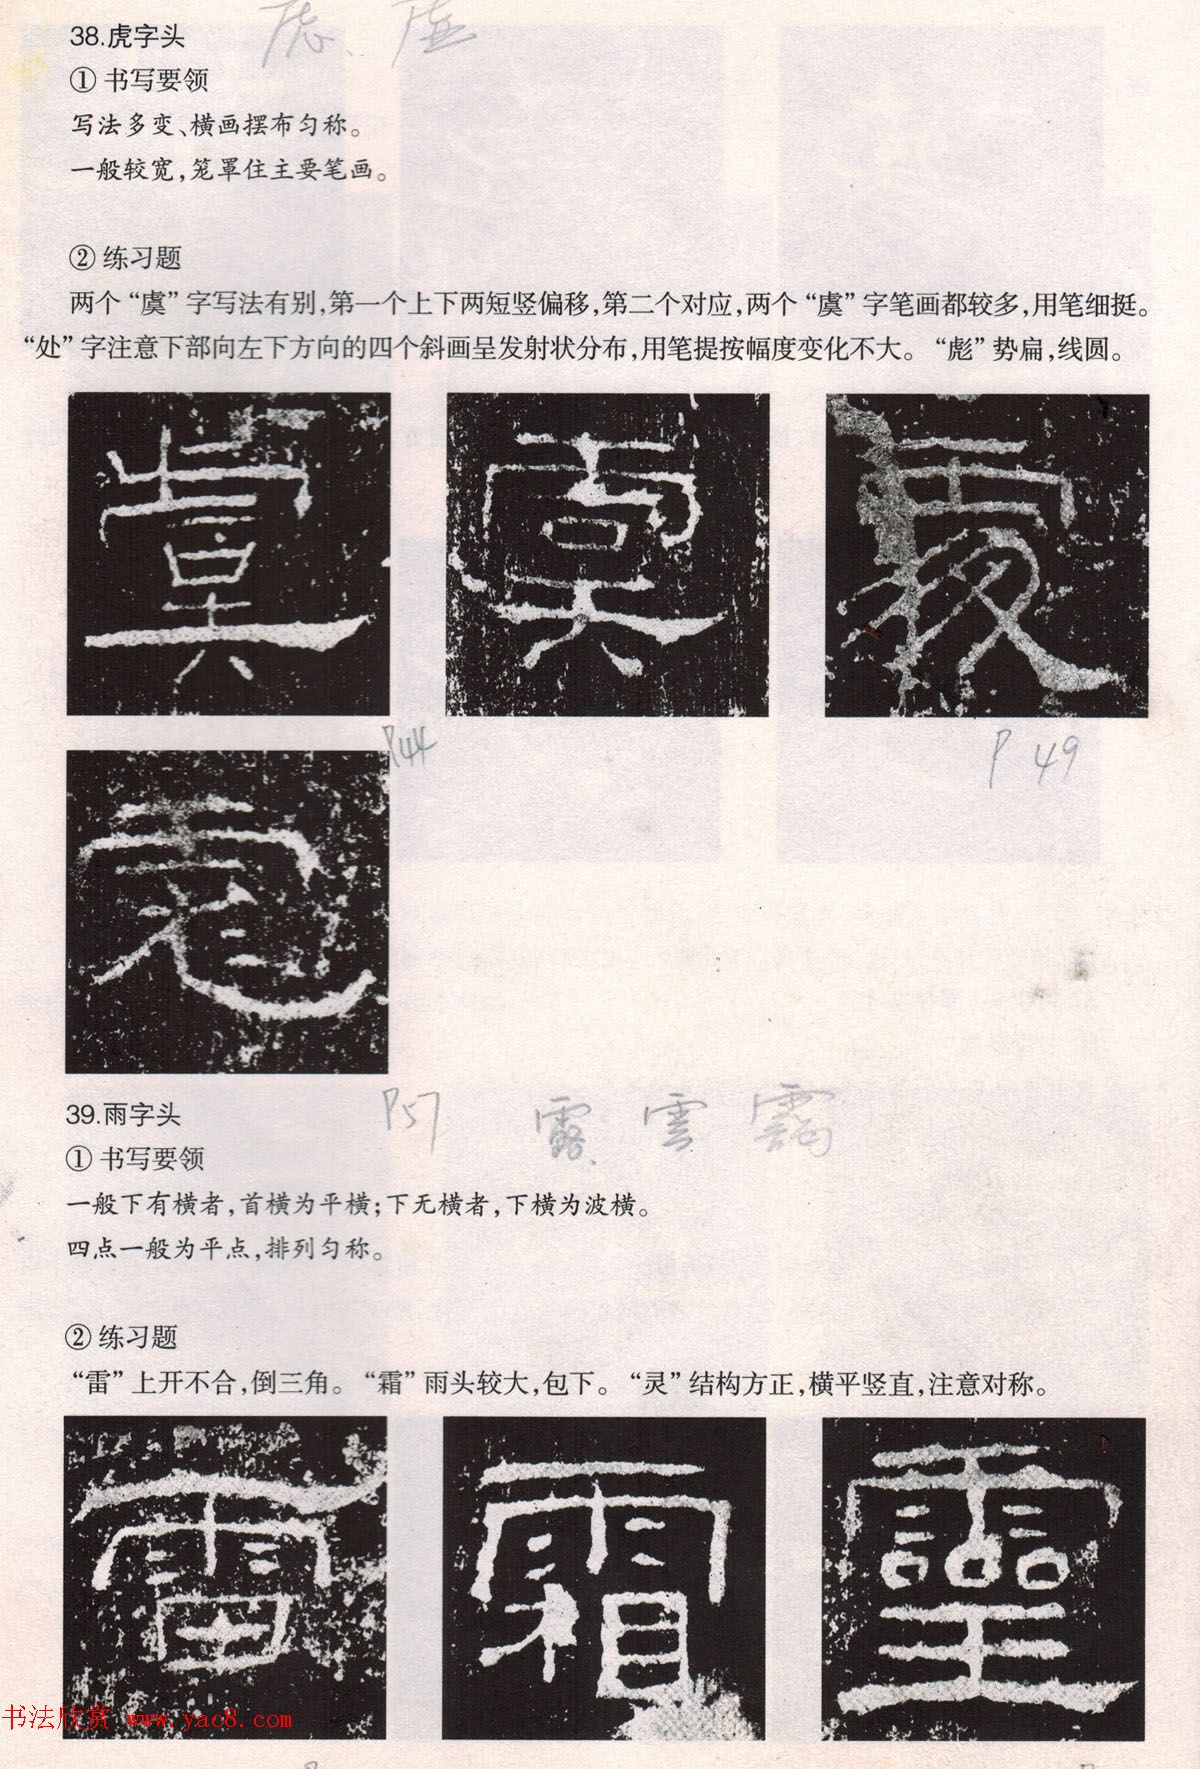 38.虎字头
虎、虚
① 书写要领
写法多变、横画摆布匀称。
一般较宽,笼罩住主要笔画。
② 练习题
两个“虞”字写法有别,第一个上下两短竖偏移,第二个对应,两个“虞”字笔画都较多,用笔细挺。
“处”字注意下部向左下方向的四个斜画呈发射状分布,用笔提按幅度变化不大。“彪”势扁,线圆。
P44
P 49
39.雨字头
P57 露 雲 霭
① 书写要领
一般下有横者,首横为平横;下无横者,下横为波横。
四点一般为平点,排列匀称。
② 练习题
“雷”上开不合,倒三角。“霜”雨头较大,包下。“灵”结构方正,横平竖直,注意对称。
雷 霜 靈
书法欣赏 www.yac8.com